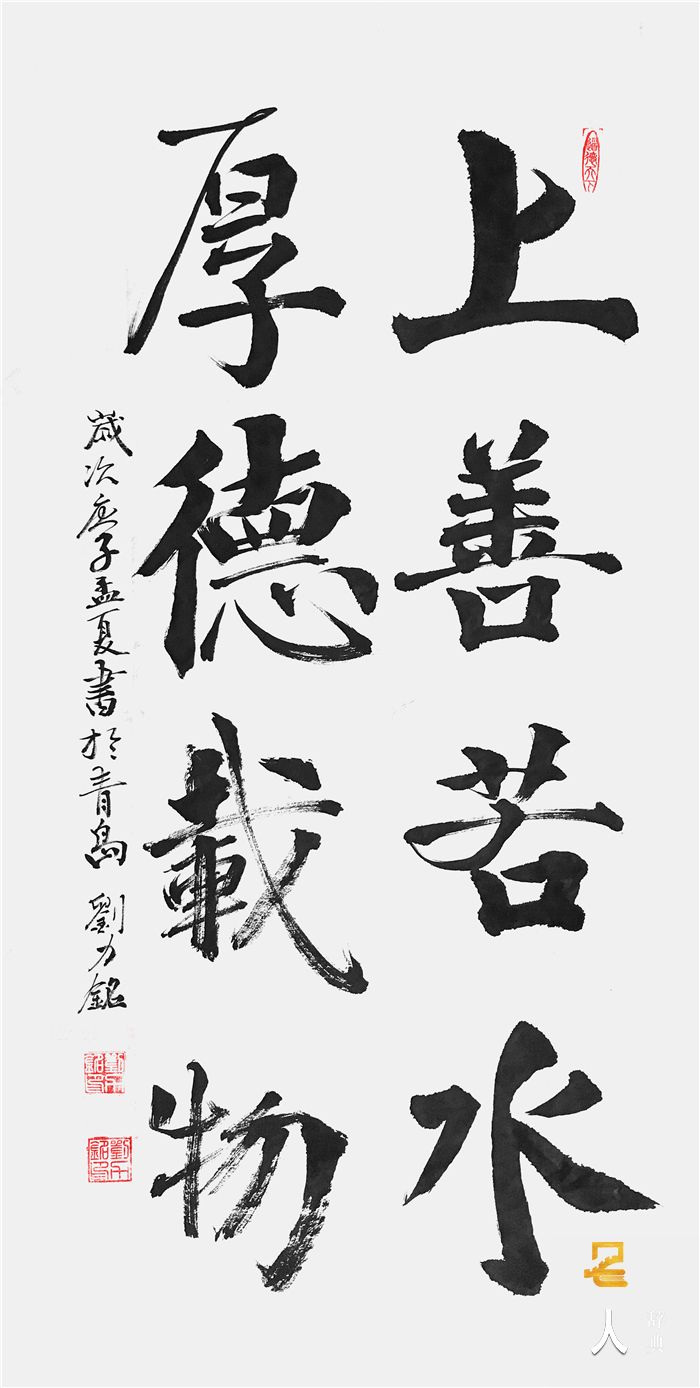 上善若水
厚德載物
歲次庚子孟夏書於青島 劉力銘
人
辞典